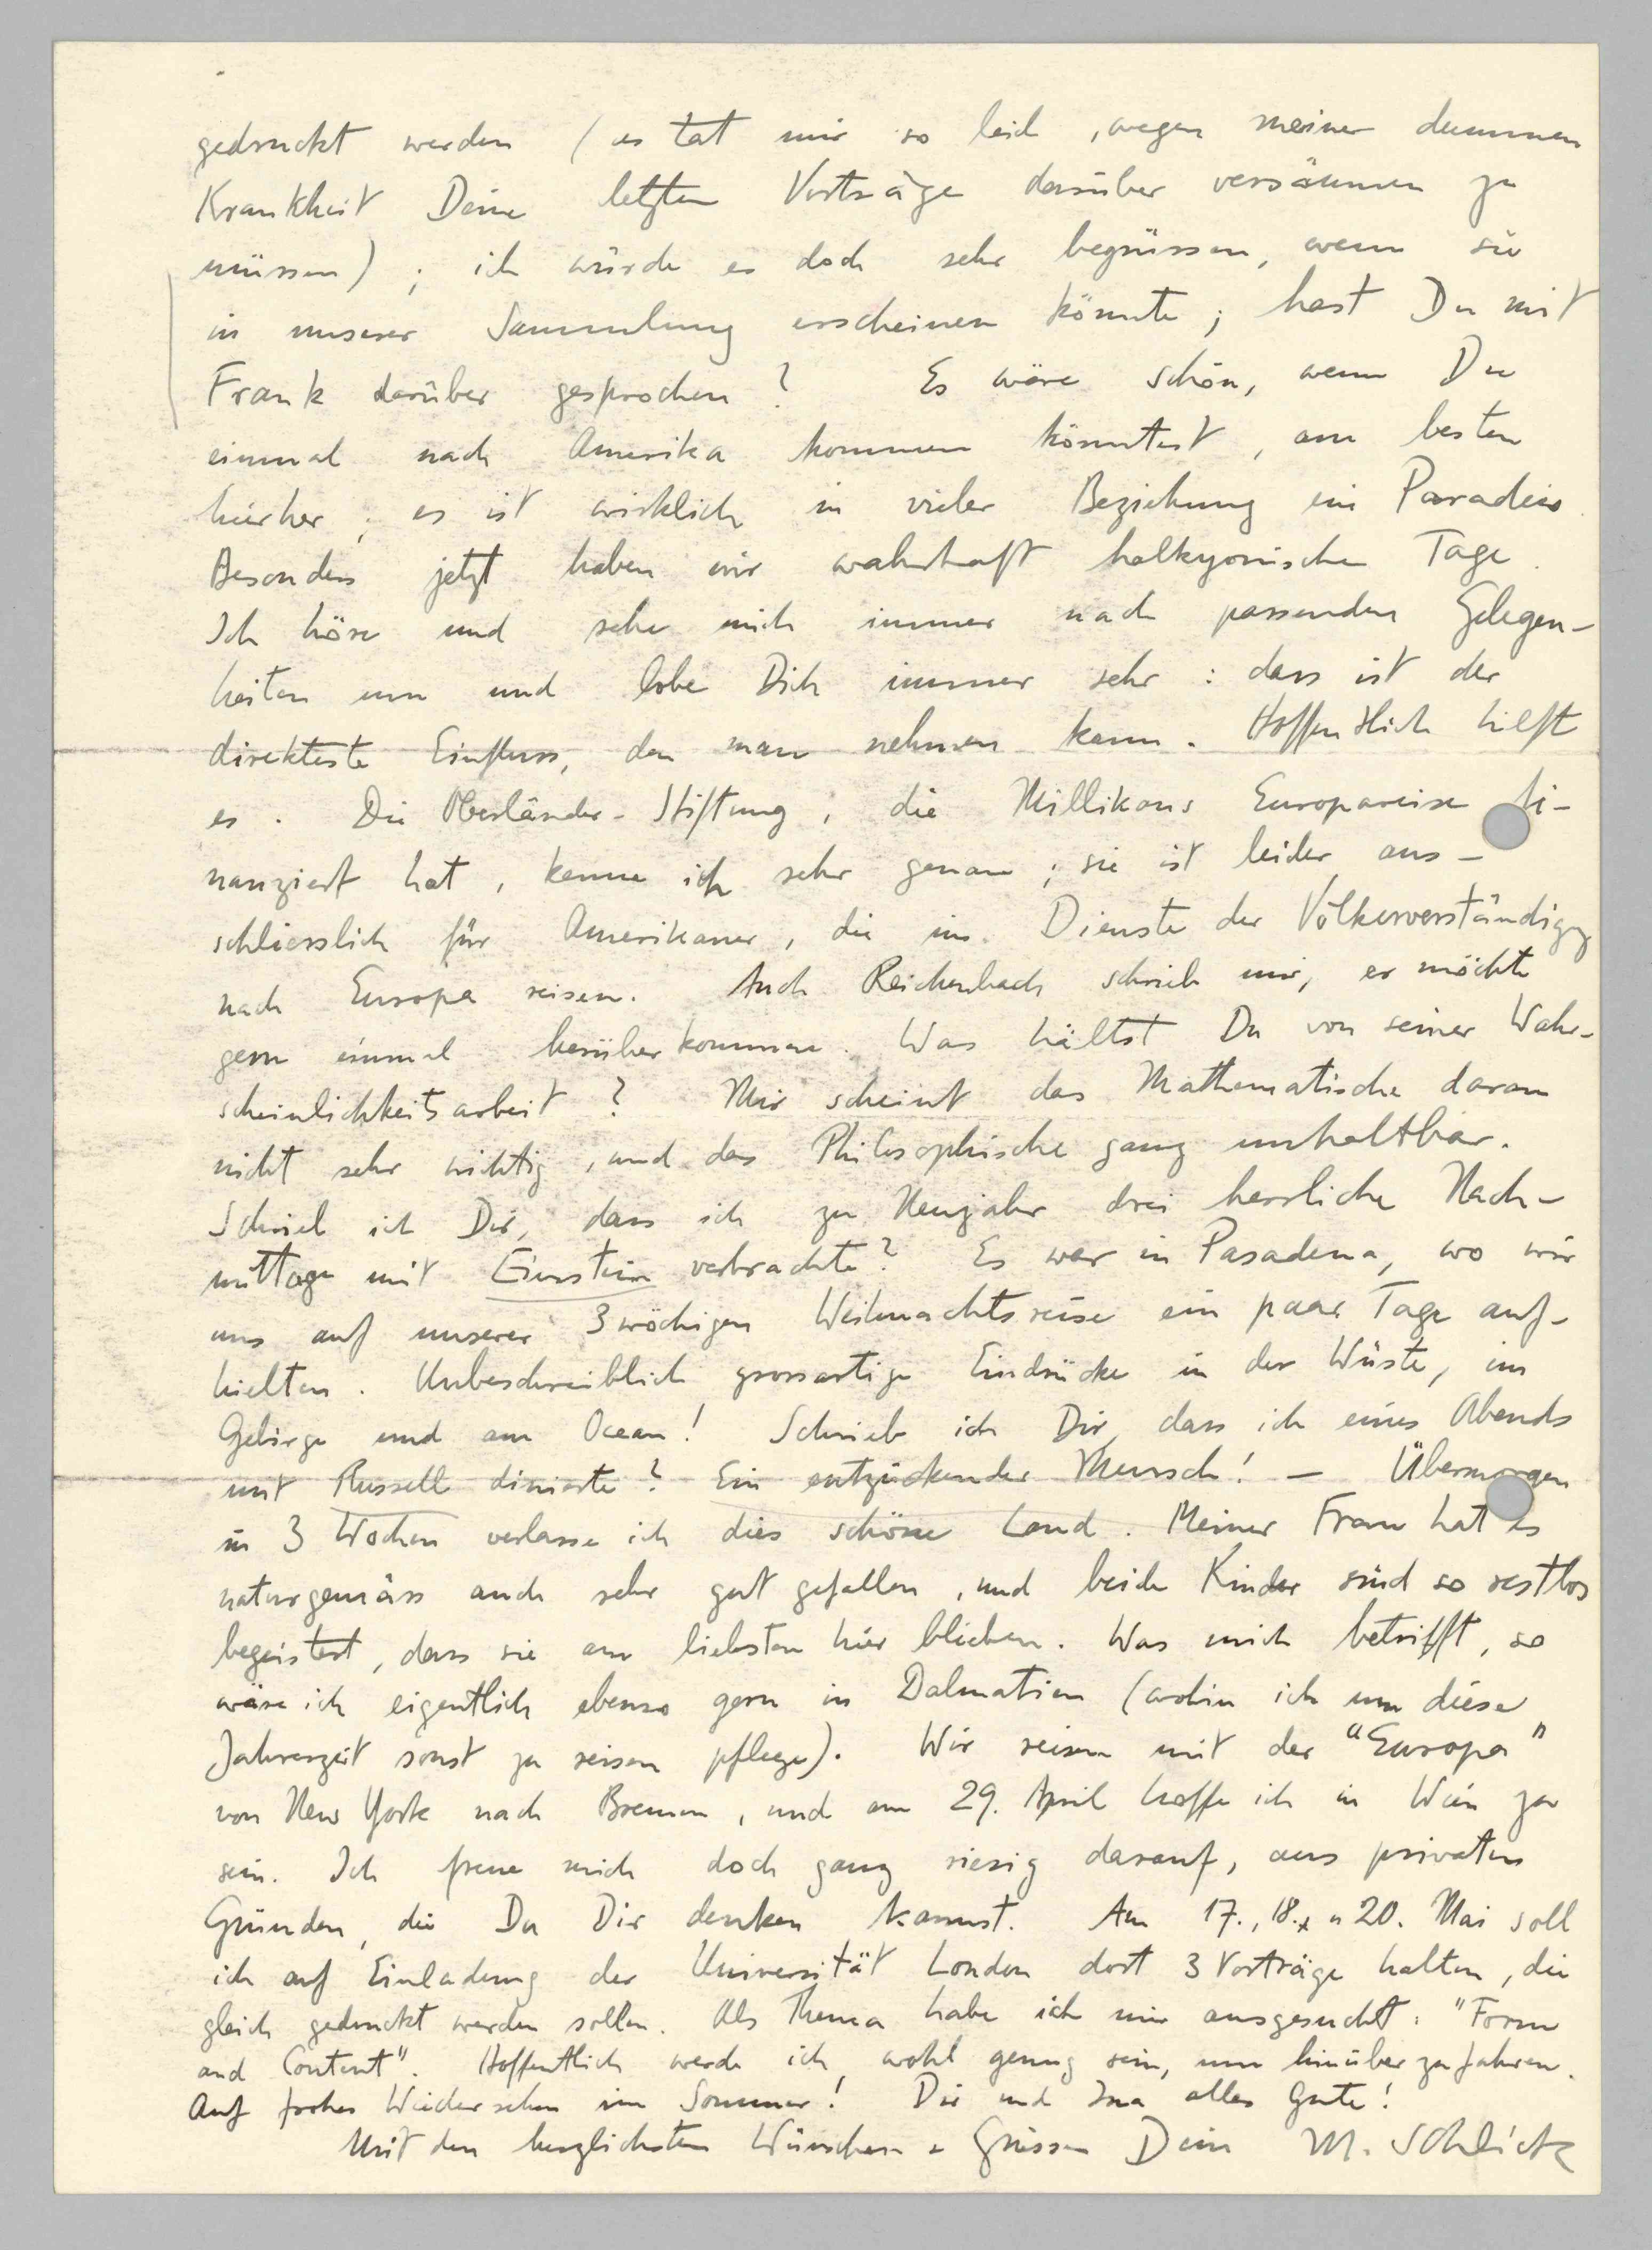 gedruckt werden (es tat mir so leid, wegen meiner dummen
Krankheit Deine letzten Vorträge darüber versäumen zu
müssen); ich würde es doch sehr begrüssen, wenn sie
in unserer Sammlung erscheinen könnte; hast Du mit
Frank darüber gesprochen? Es wäre schön, wenn Du
einmal nach Amerika kommen könntest, am besten
hierher; es ist wirklich in vieler Beziehung ein Paradies.
Besonders jetzt haben wir wahrhaft halkyonische Tage.
Ich höre und sehe mich immer nach passenden Gelegen-
heiten um und lobe Dich immer sehr: dass ist der
direkteste Einfluss, den man nehmen kann. Hoffentlich hilft
es. Die Oberländer-Stiftung, die Millikans Europareise fi-
nanziert hat, kenne ich sehr genau; sie ist leider aus-
schliesslich für Amerikaner, die im Dienste der Völkerverständigg
nach Europa reisen. Auch Reichenbach schrieb mir, er möchte
gern einmal herüberkommen. Was hältst Du von seiner Wahr-
scheinlichkeitsarbeit? Mir scheint das Mathematische daran
nicht sehr wichtig, und das Philosophische ganz unhaltbar.
Schrieb ich Dir, dass ich zu Neujahr drei herrliche Nach-
mittage mit Einstein verbrachte? Es war in Pasadena, wo wir
uns auf unserer 3wöchigen Weihnachtsreise ein paar Tage auf-
hielten. Unbeschreiblich grossartige Eindrücke in der Wüste, im
Gebirge und am Ocean! Schrieb ich Dir, dass ich eines Abends
mit Russell dinierte? Ein entzückender Mensch! — Übermorgen
in 3 Wochen verlasse ich dies schöne Land. Meiner Frau hat es
naturgemäss auch sehr gut gefallen, und beide Kinder sind so restlos
begeistert, dass sie am liebsten hier blieben. Was mich betrifft, so
wäre ich eigentlich ebenso gern in Dalmatien (wohin ich um diese
Jahreszeit sonst zu reisen pflege). Wir reisen mit der "Europa"
von New York nach Bremen, und am 29. April hoffe ich in Wien zu
sein. Ich freue mich doch ganz riesig darauf, aus privaten
Gründen, die Du Dir denken kannst. Am 17., 18. u 20. Mai soll
ich auf Einladung der Universität London dort 3 Vorträge halten, die
gleich gedruckt werden sollen. Als Thema habe ich mir ausgesucht: "Form
and Content". Hoffentlich werde ich wohl genug sein, um hinüber zu fahren.
Auf frohes Wiedersehen im Sommer! Dir und Ina alles Gute!
Mit den herzlichsten Wünschen u Grüssen Dein M. Schlick